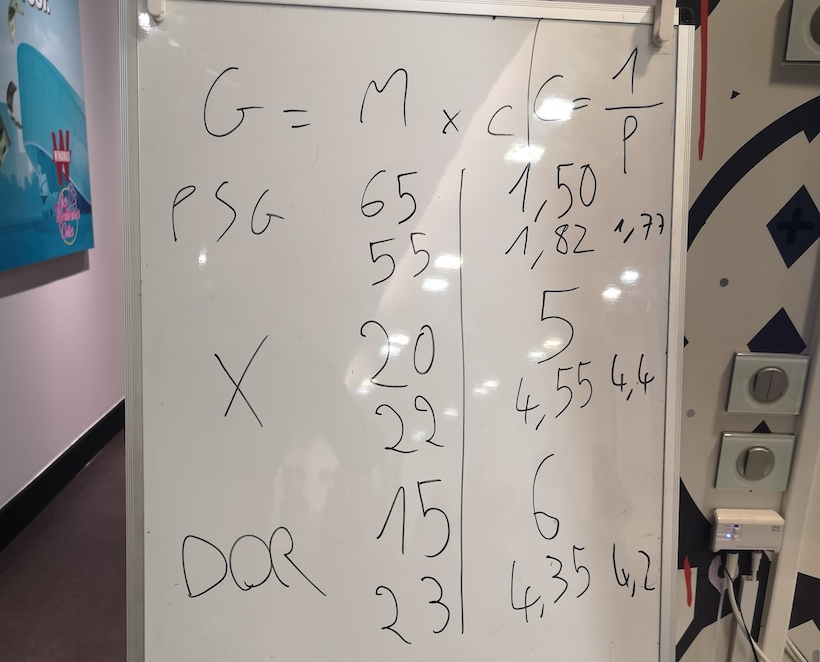 G = M x C | C = 1/P
PSG 65 | 1,50
55 | 1,82 1,77
X 20 | 5
22 | 4,55 4,4
DOR 15 | 6
23 | 4,35 4,2
W
WINAMAX